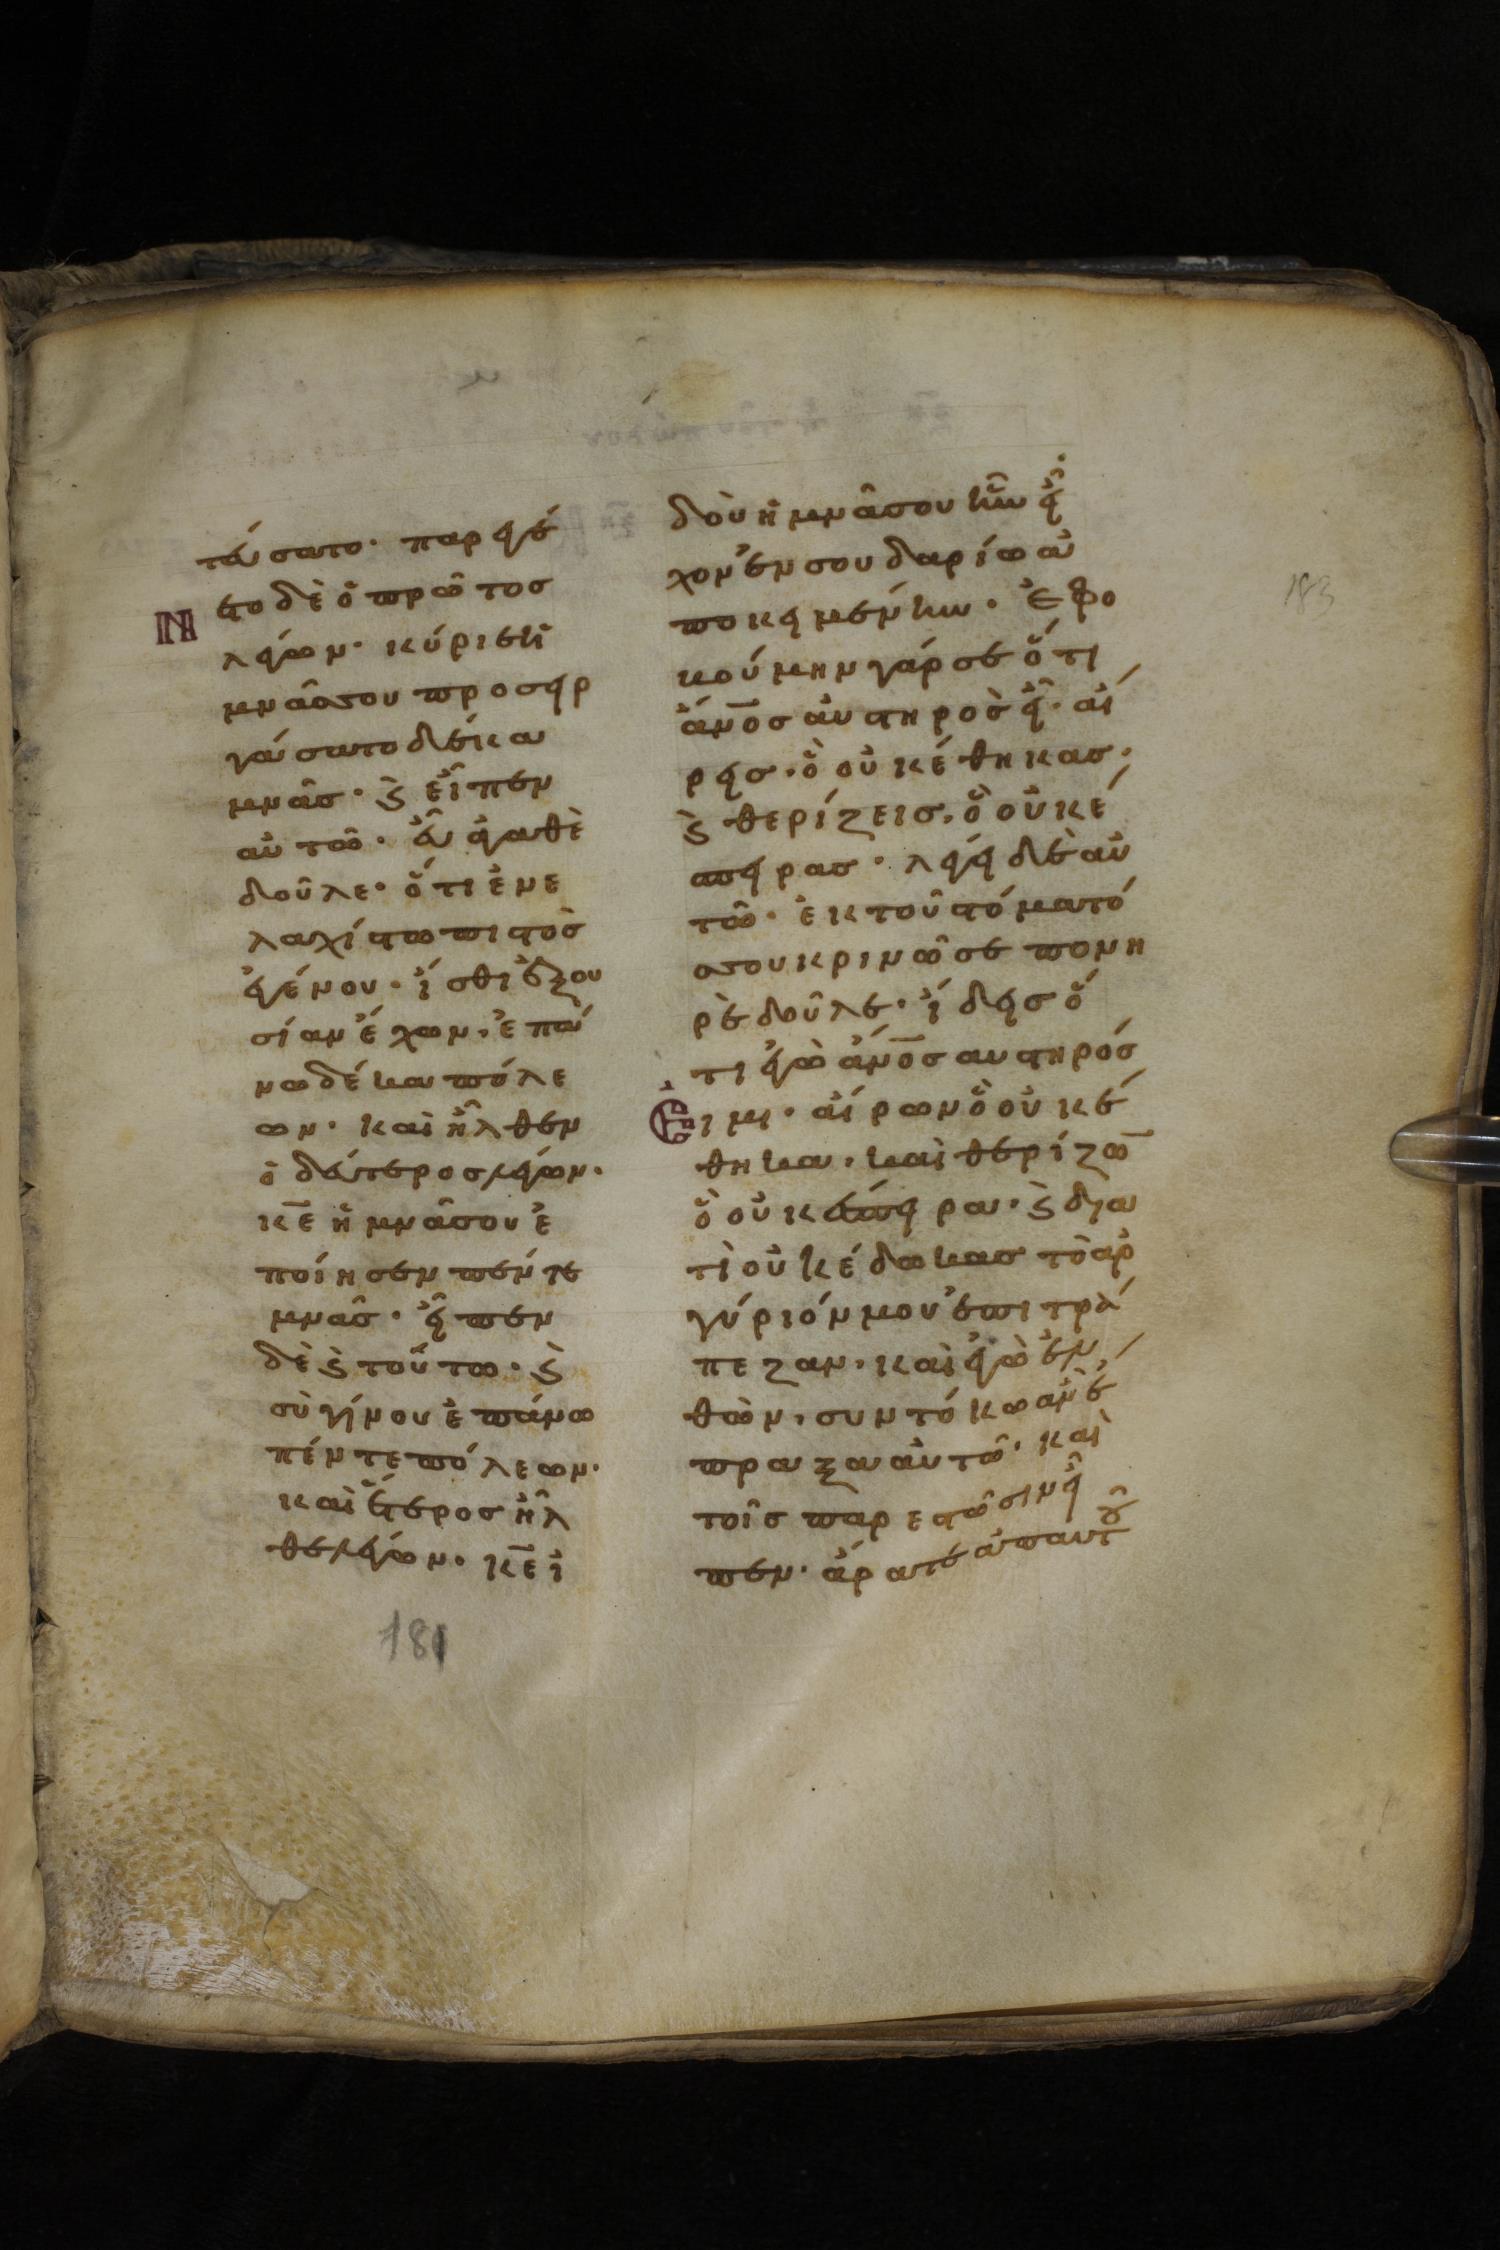 τεύσατο· παρεγέ
Νετο δὲ ὁ πρῶτοσ
λέγων· κύριε ἡ
μνᾶ σου προσειρ
γάσατο δέκα
μνᾶσ· ϗ εἶπεν
αὐτῶ· εὖ ἀγαθὲ
δοῦλε· ὅτι ἐν ἐ
λαχίστω πιστὸσ
ἐγένου· ἴσθι ἐξου
σίαν ἔχων, ἐπά
νω δέκα πόλε
ων· καὶ ἦλθεν
ὁ δεύτεροσ λέγων·
κ̅ε̅ ἡ μνᾶ σου ἐ
ποίησεν πέντε
μνᾶσ· εἶπεν
δὲ ϗ τούτω· ϗ
σὺ γίνου ἐπάνω
πέντε πόλεων·
καὶ ἕτεροσ ἦλ
θε λέγων· κ̅ε̅ ἰ
δοὺ ἡ μνᾶ σου ἣν εἶ
χον ἐν σουδαρίω ἀ
ποκειμένην· Ἐφο
βούμην γάρ σε ὅτι
ἄν̅ο̅σ αὐστηρὸσ εἶ· αἴ
ρεισ· ὃ οὐκ έθηκασ·
ϗ θερίζεισ, ὃ οὐκ έ
σπειρασ· λέγει δὲ αὐ
τῶ· ἐκ τοῦ στόματό
σου κρινῶ σε πονη
ρὲ δοῦλε· ἤδεισ ὅ
τι ἐγὼ ἄν̅ο̅σ αυστηρόσ
Εἰμι· αἴρων ὃ οὐκ έ
θηκα, καὶ θερίζω̅
ὃ οὐκ έσπειρα· ϗ δια
τὶ οὐκ έδωκασ τὸ ἀρ
γύριόν μου ἐπὶ τρά
πεζαν, καὶ ἐγὼ ἐλ
θὼν, συν τόκω ἂν έ
πραξα αὐτῶ· καὶ
τοῖσ παρεστῶσιν εἶ
πεν· άρατε ἀπ' αυτοῦ
181
183